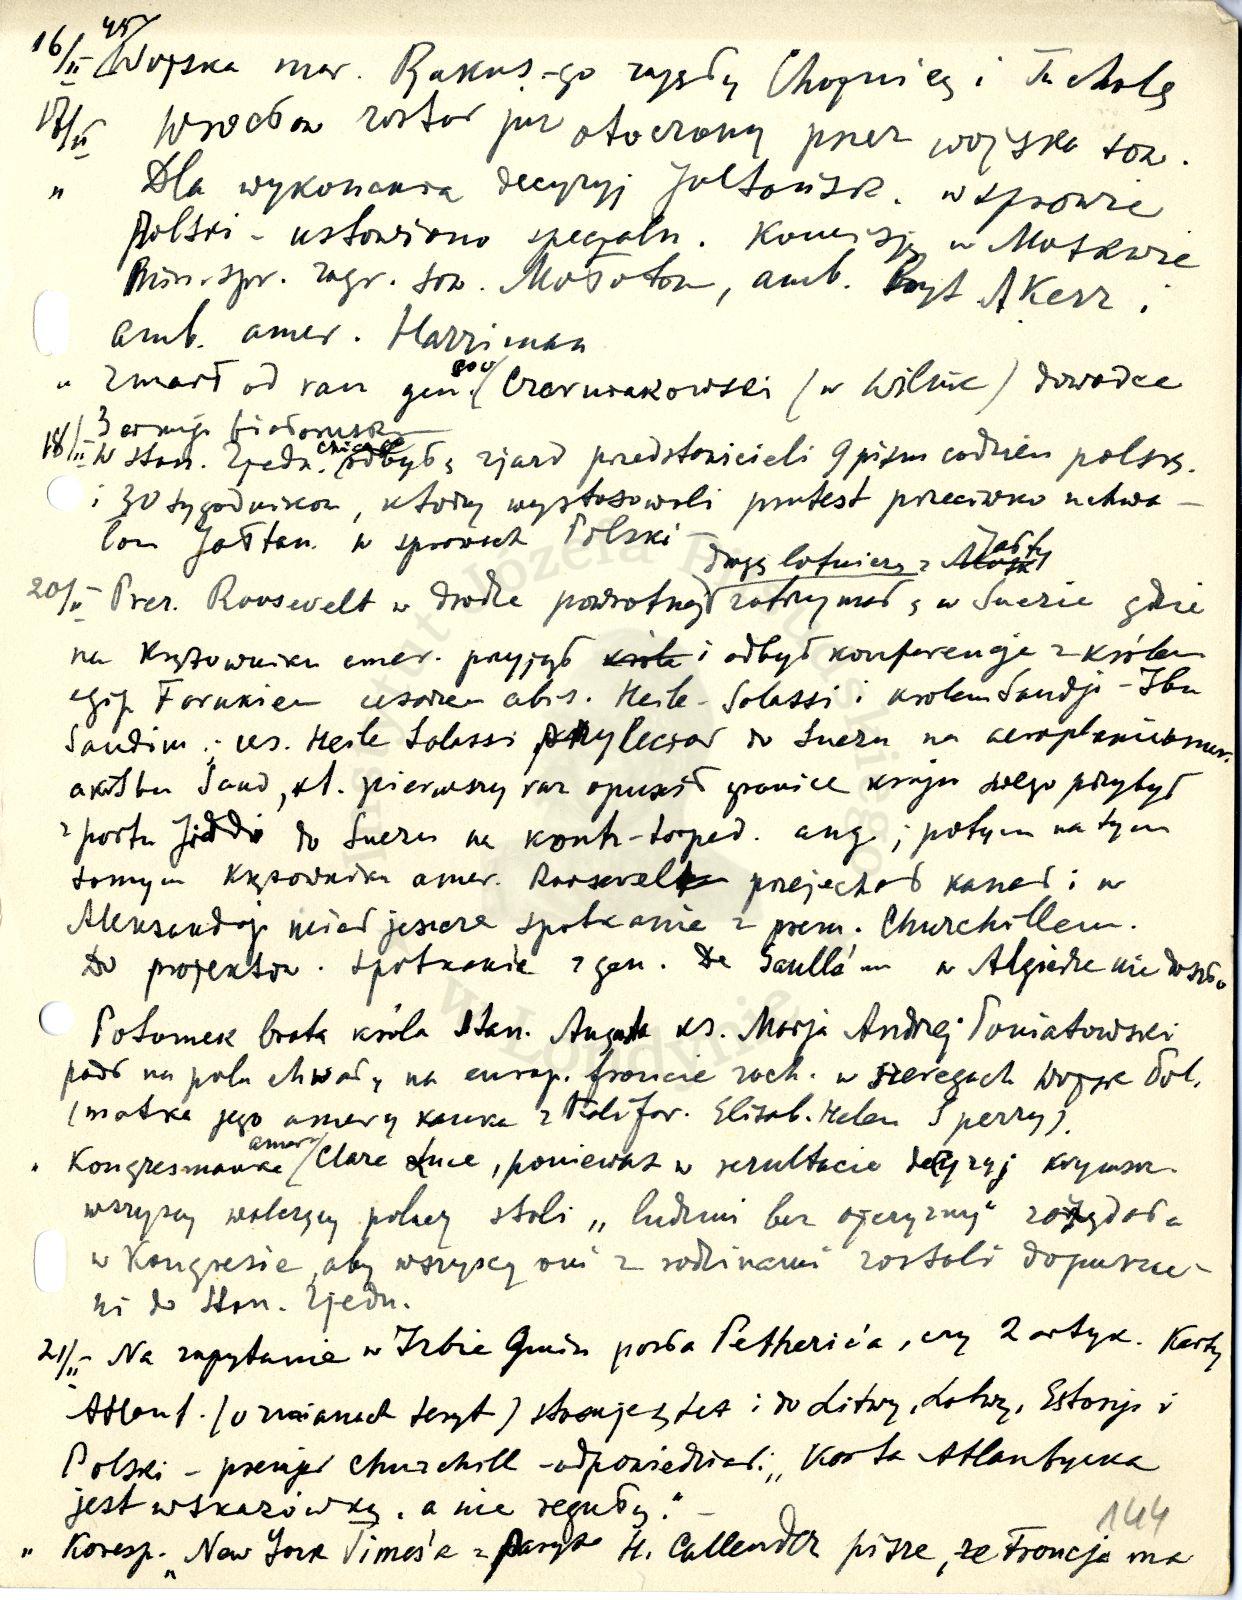 16/II 45 Wojska mar. Rokos.-go zajęły Chojnice i Tucholę
17/II Wrocław został już otoczony przez wojska sow.
" Dla wykonania decyzyj Jałtańsk. w sprawie
Polski - ustawiono specjaln. Komisję w Moskwie
Min. spr. zagr. sow. Mołotow, amb. Bryt A Kerr i
amb. amer. Harriman
" Zmarł od ran gen. sow Czerniakowski (w Wilnie) dowódca
3 armji białorusk.
18/II W Stan. Zjedn. Chicago odbył się zjazd przedstawicieli 9 pism codzien polsk.
i 30 tygodników, którzy wystosowali protest przeciwko uchwa-
łom Jałtan. w sprawach Polski -
20/II - Prez. Roosevelt w drodze powrotnej drogą lotniczą z Jałty zatrzymał się w Suezie gdzie
na krążowniku amer. przyjął i odbył konferencje z królem
egip. Farukiem cesarzem abis. Heile-Selassi i królem Saudji - Ibn
Saudim; ces. Heile Selassi przyleciał do Suezu na aeroplanie amer.
a Ibn Saud, kt. pierwszy raz opuścił granice kraju swego przybył
z portu Jiddi do Suezu na kontr-torped. ang; potym na tym
samym krążowniku amer. Roosevelt przejechał kanał i w
Aleksandrji miał jeszcze spotkanie z prem. Churchillem.
Do projektow. spotkanie z gen. De Gaulle'm w Algierze nie doszło
Potomek brata króla Stan. Augusta ks. Marja Andrzej Poniatowski
padł na polu chwały na europ. froncie zach. w szeregach Wojsk Pol.
(matka jego amerykanka z Kalifor. Elisab. Helen Sperry).
" Kongresmanka amer. Clare Luce, ponieważ w rezultacie decyzyj krymsk.
wszyscy walczący polacy stali „ludźmi bez ojczyzny" zażądała
w Kongresie, aby wszyscy oni z rodzinami zostali dopuszcze-
ni do Stan. Zjedn.
21/II - Na zapytanie w Izbie Gmin posła Petherick'a, czy 2 artyk. Karty
Atlant. (o zmianach teryt) stosuje się też i do Litwy, Łotwy, Estonji i
Polski - premjer Churchill - odpowiedział: „Karta Atlantycka
jest wskazówką, a nie regułą." -
" Koresp. „New York Times'a z Paryża H. Callender pisze, że Francja ma
144
Instytut Józefa Piłsudskiego w Londynie